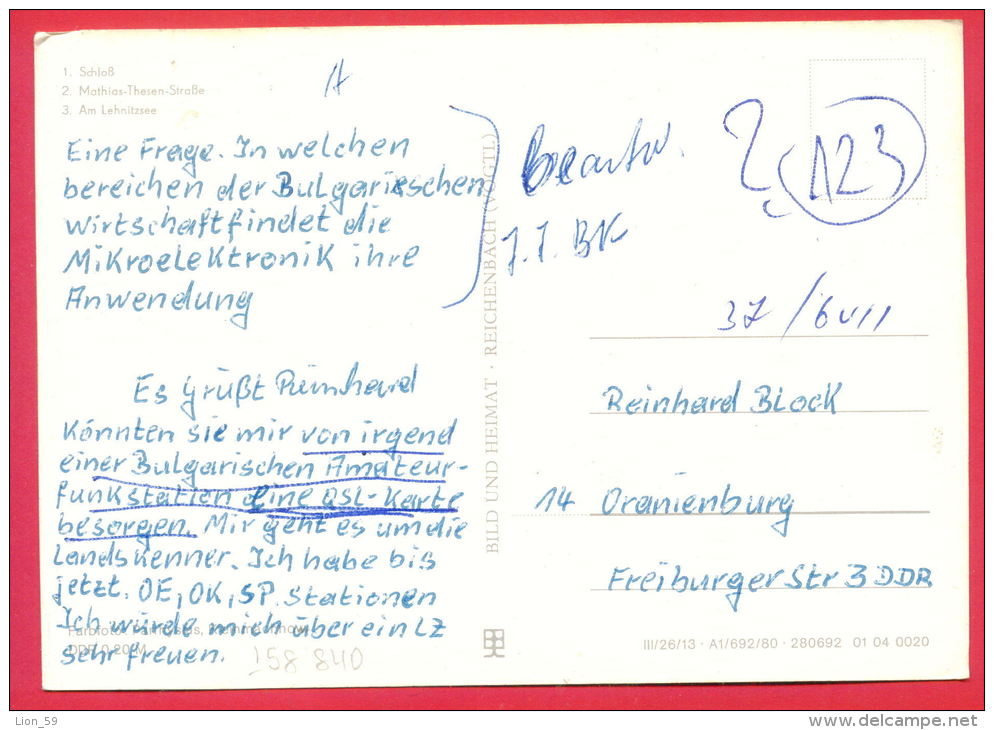 1. Schloß
2. Mathias-Thesen-Straße
3. Am Lehnitzsee
A
Eine Frage. In welchen
bereichen der Bulgarischen
wirtschaft findet die
Mikroelektronik ihre
Anwendung
Es grüßt Reinhard
Könnten sie mir von irgend
einer Bulgarischen Amateur-
funkstation eine QSL-Karte
besorgen. Mir geht es um die
Landskenner. Ich habe bis
jetzt. OE, OK, SP. Stationen
Ich würde mich über ein LZ
sehr freuen.
Farbfoto:
DDR 0,20 M
158 840
BILD UND HEIMAT · REICHENBACH (VOGTL)
Beantw.
?
123
37/6 VII
Reinhard Block
14 Oranienburg
Freiburger Str 3 DDR
III/26/13 · A1/692/80 · 280692 01 04 0020
Lion_59
www.delcampe.net